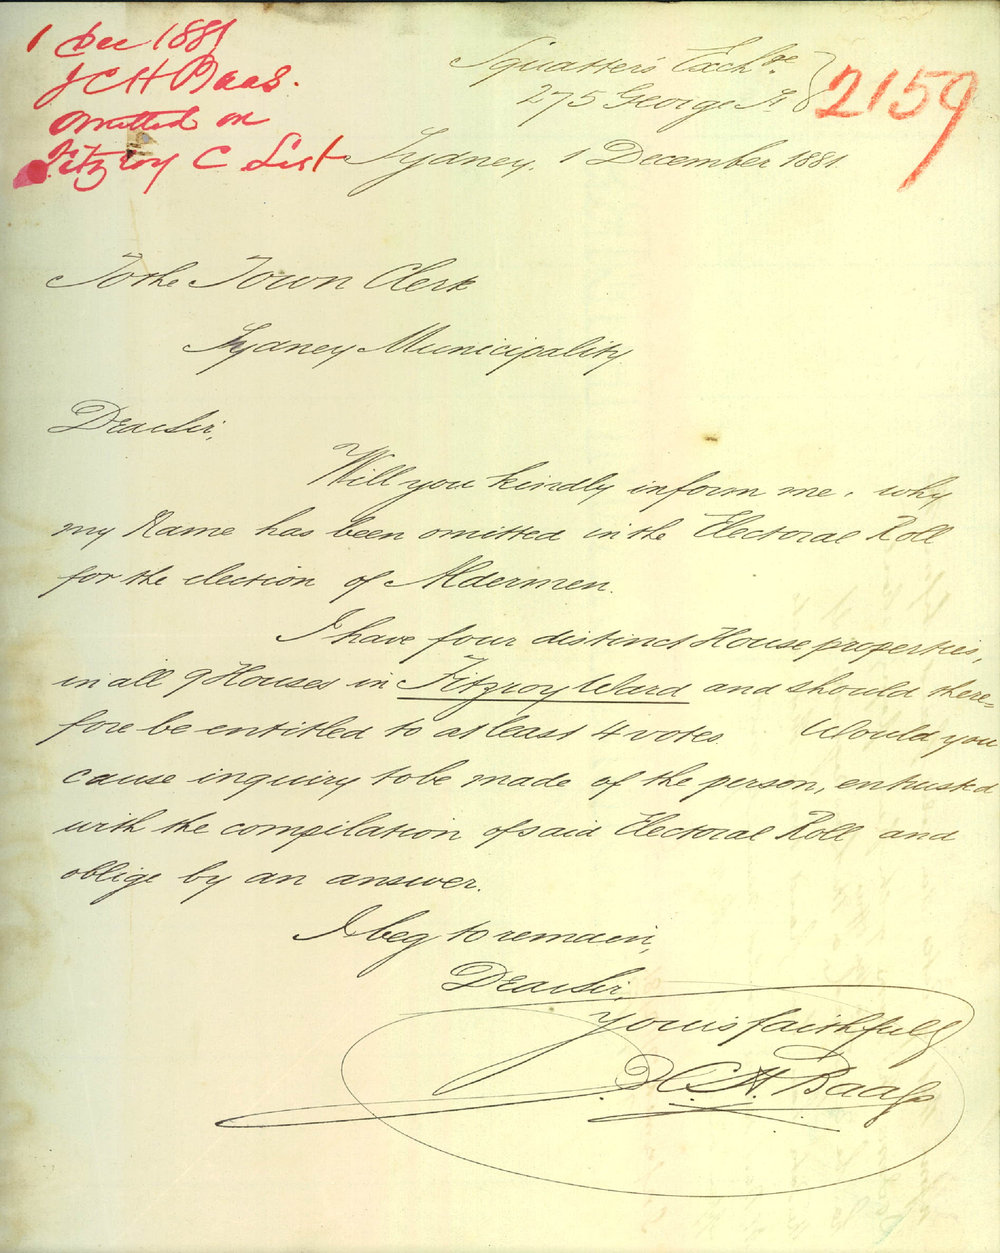 1 Dec 1881
J C H Baas.
Omitted on
Fitzroy C List
2159
Squatter's Exchge
275 George St
Sydney, 1 December 1881.
To the Town Clerk
Sydney Municipality.
Dear Sir,
Will you kindly inform me, why
my Name has been omitted in the Electoral Roll
for the election of Aldermen.
I have four distinct House properties,
in all 9 Houses in Fitzroy Ward and should there-
fore be entitled to at least 4 votes. Would you
cause inquiry to be made of the person, entrusted
with the compilation of said Electoral Roll and
oblige by an answer.
I beg to remain,
Dear Sir,
Yours faithfully
J.C.H. Baass